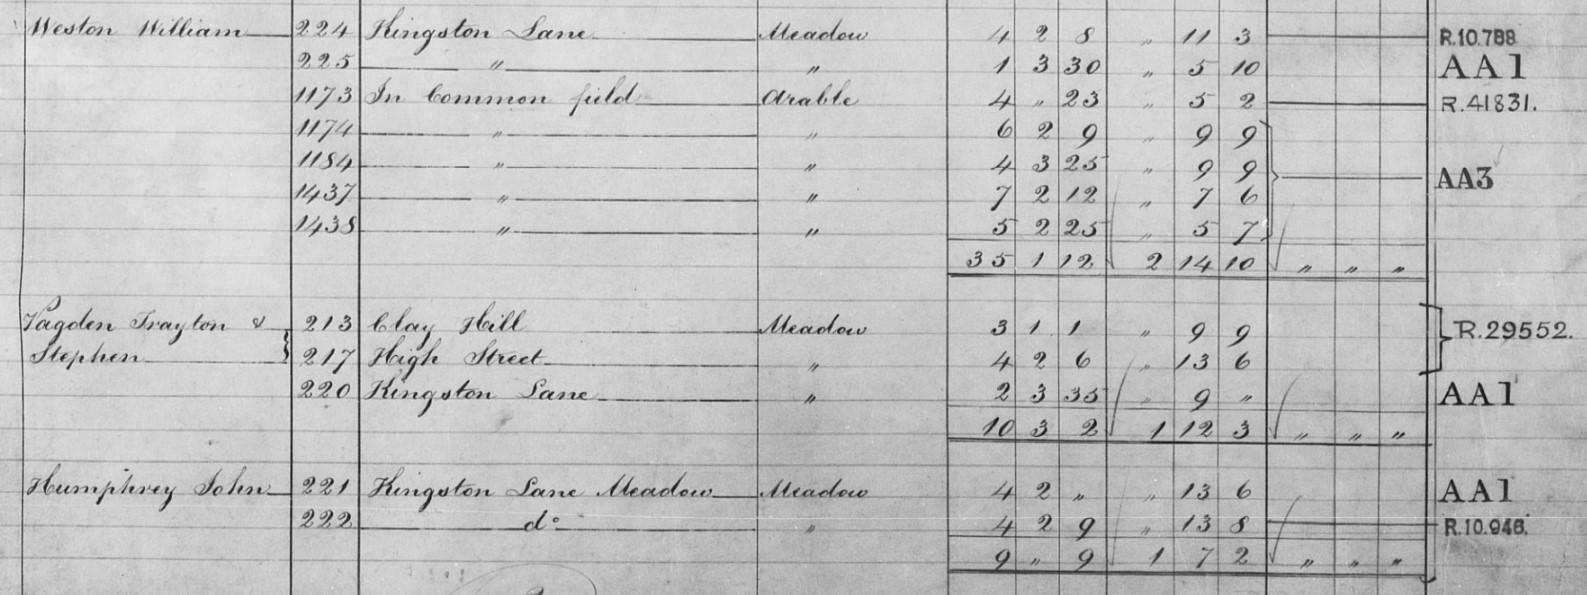 Weston William 224 Kingston Lane Meadow 4 2 8 " 11 3 R.10.788
225 " " 1 3 30 " 5 10 AA1
1173 In Common field Arable 4 " 23 " 5 2 R.41831.
1174 " " 6 2 9 " 9 9
1184 " " 4 3 25 " 9 9 AA3
1437 " " 7 2 12 " 7 6
1438 " " 5 2 25 " 5 7
35 1 12 2 14 10 " " "
Trayton & 213 Clay Hill Meadow 3 1 1 " 9 9 R.29552.
Stephen 217 High Street " 4 2 6 " 13 6
220 Kingston Lane " 2 3 35 " 9 " AA1
10 3 2 1 12 3 " " "
Humphrey John 221 Kingston Lane Meadow Meadow 4 2 " " 13 6 AA1
222 do " 4 2 9 " 13 8 R.10.946.
9 " 9 1 7 2 " " "